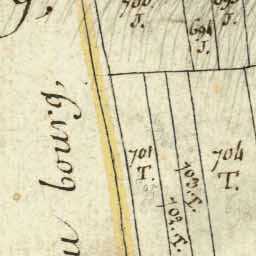 g,
700
J.
694
J.
695
J.
u bourg,
701
T.
702. T.
703. T.
704
T.